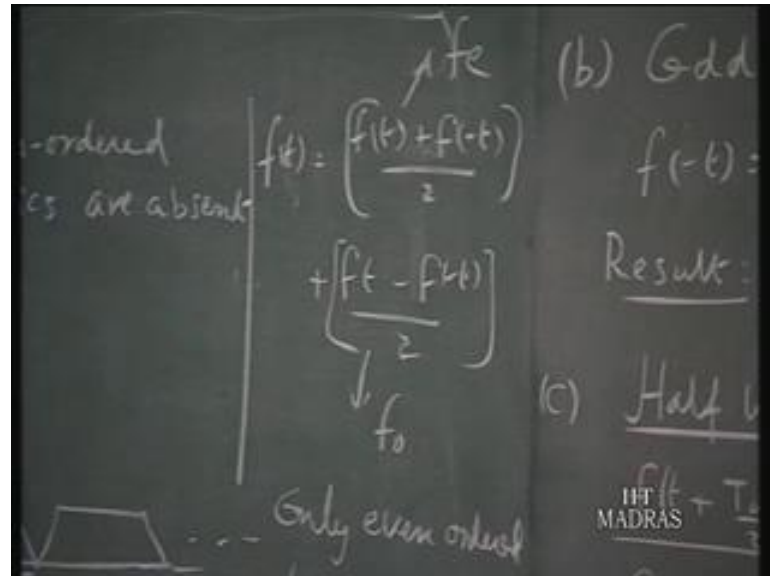 fe
-ordered
cs are absent
f(t) = (f(t) + f(-t) / 2)
+ [f(t - f(-t) / 2]
fo
Only even ordered
(b) Odd
f(-t) =
Result:
(c) Half
f(t + T
IIT
MADRAS